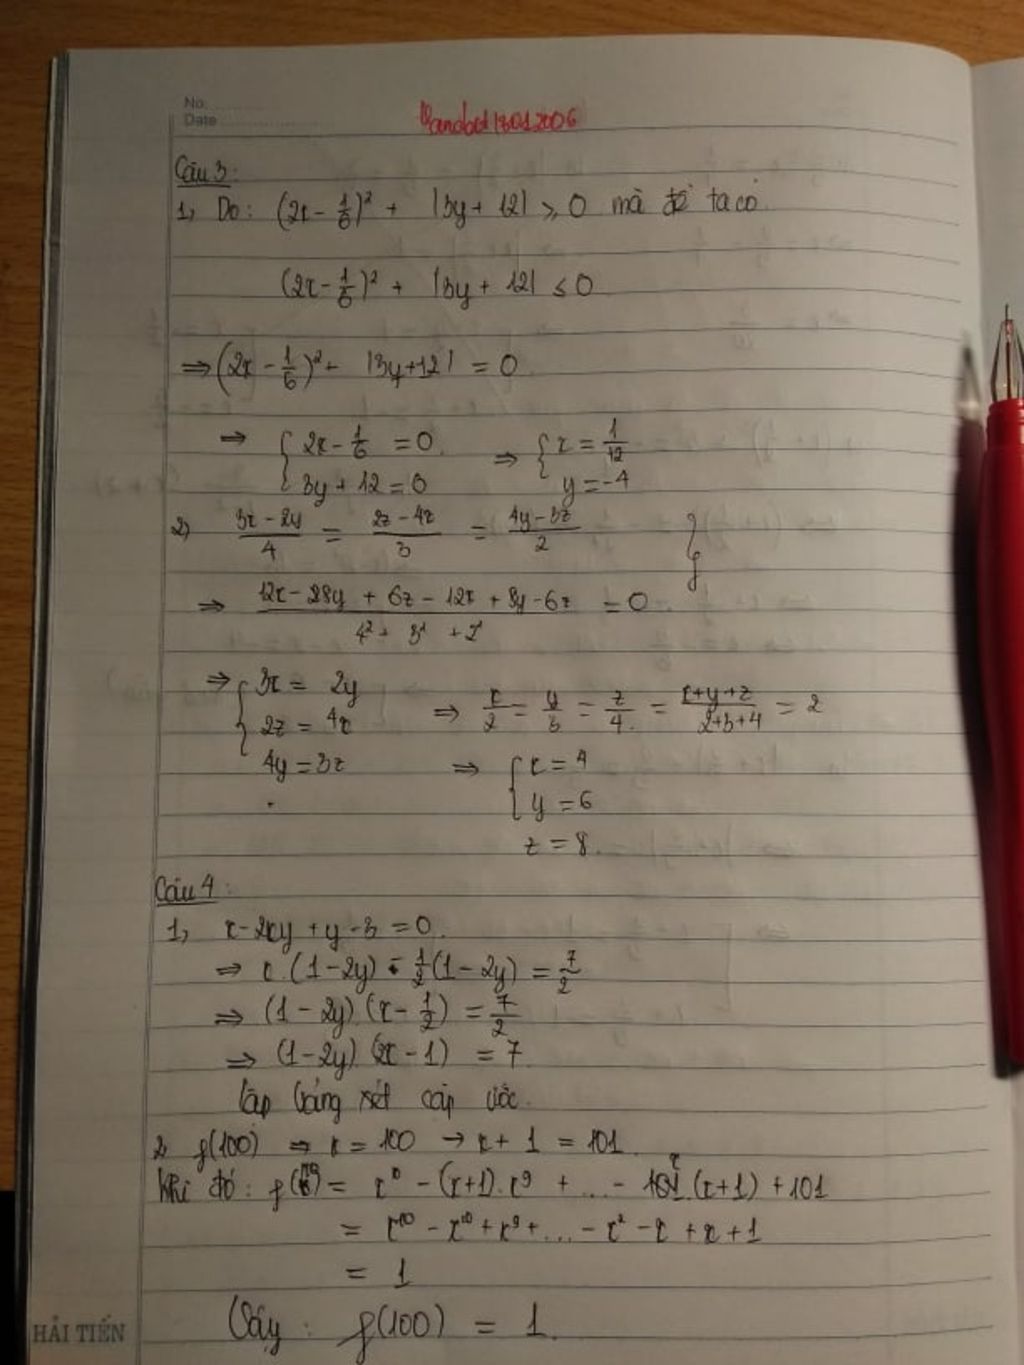 No.
Date
Câu 3:
1, Do: (2x - 1/6)² + |3y + 12| ≥ 0 mà đề ta có.
(2x - 1/6)² + |3y + 12| ≤ 0
⇒ (2x - 1/6)² + |3y + 12| = 0
⇒ { 2x - 1/6 = 0 ⇒ { x = 1/12
3y + 12 = 0 y = -4
2) (3x - 2y)/4 = (2z - 4x)/3 = (4y - 3z)/2 }
⇒ (12x - 28y + 6z - 12x + 8y - 6z)/(4² + 3² + 2²) = 0
⇒ { 3x = 2y
2z = 4x ⇒ x/2 = y/3 = z/4 = (x+y+z)/(2+3+4) = 2
4y = 3z ⇒ { x = 4
y = 6
z = 8.
Câu 4:
1, x - 2xy + y - 3 = 0.
⇒ x (1 - 2y) - 1/2 (1 - 2y) = 7/2
⇒ (1 - 2y) (x - 1/2) = 7/2
⇒ (1 - 2y) (2x - 1) = 7
Lập bảng xét cặp ước.
2, f(100) ⇒ x = 100 → x + 1 = 101.
Khi đó: = x¹⁰ - (x+1).x⁹ + ... - x (x+1) + 101
= x¹⁰ - x¹⁰ + x⁹ + ... - x² - x + x + 1
= 1
Vậy: f(100) = 1.
HẢI TIẾN